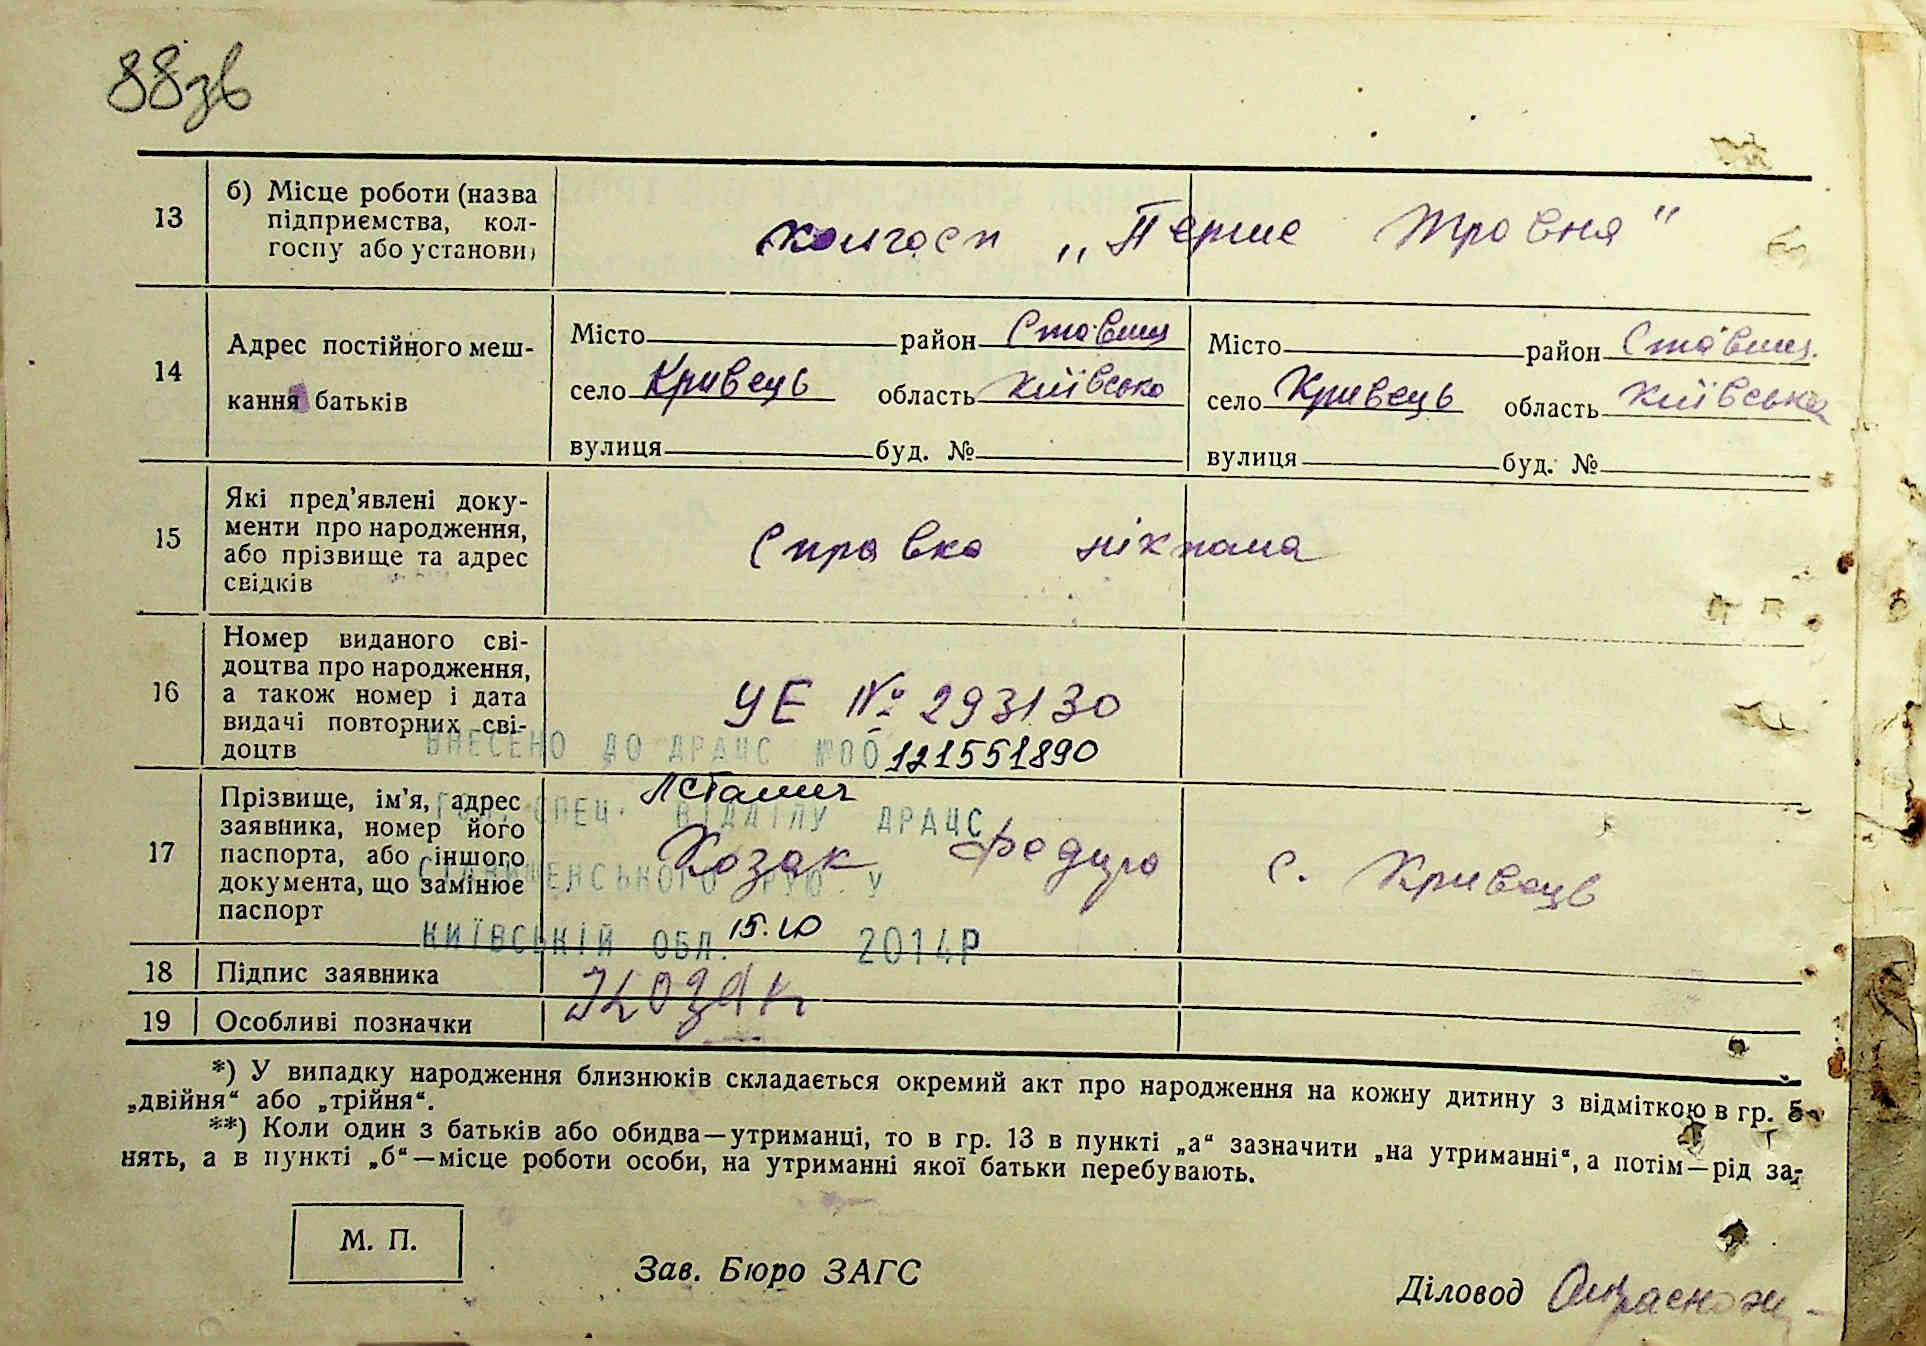 88зв
13 б) Місце роботи (назва
підприємства, кол-
госпу або установи)
колгосп „Перше Травня"
14 Адрес постійного меш-
кання батьків
Місто район Ставищ
село Кривець область Київська
вулиця буд. №
Місто район Ставищ.
село Кривець область Київська
вулиця буд. №
15 Які пред'явлені доку-
менти про народження,
або прізвище та адрес
свідків
Справка
16 Номер виданого сві-
доцтва про народження,
а також номер і дата
видачі повторних сві-
доцтв
УЕ № 293130
ВНЕСЕНО ДО ДРАЦС №00 121551890
17 Прізвище, ім'я, адрес
заявника, номер його
паспорта, або іншого
документа, що замінює
паспорт
ГОЛ. СПЕЦ. ВІДДІЛУ ДРАЦС
Козак Федура с. Кривець
СТАВИЩЕНСЬКОГО РУЮ У
КИЇВСЬКІЙ ОБЛ. 15.10 2014Р
18 Підпис заявника
Козак
19 Особливі позначки
*) У випадку народження близнюків складається окремий акт про народження на кожну дитину з відміткою в гр. 5
„двійня“ або „трійня“.
**) Коли один з батьків або обидва—утриманці, то в гр. 13 в пункті „а“ зазначити „на утриманні“, а потім—рід за-
нять, а в пункті „б“—місце роботи особи, на утриманні якої батьки перебувають.
М. П.
Зав. Бюро ЗАГС
Діловод